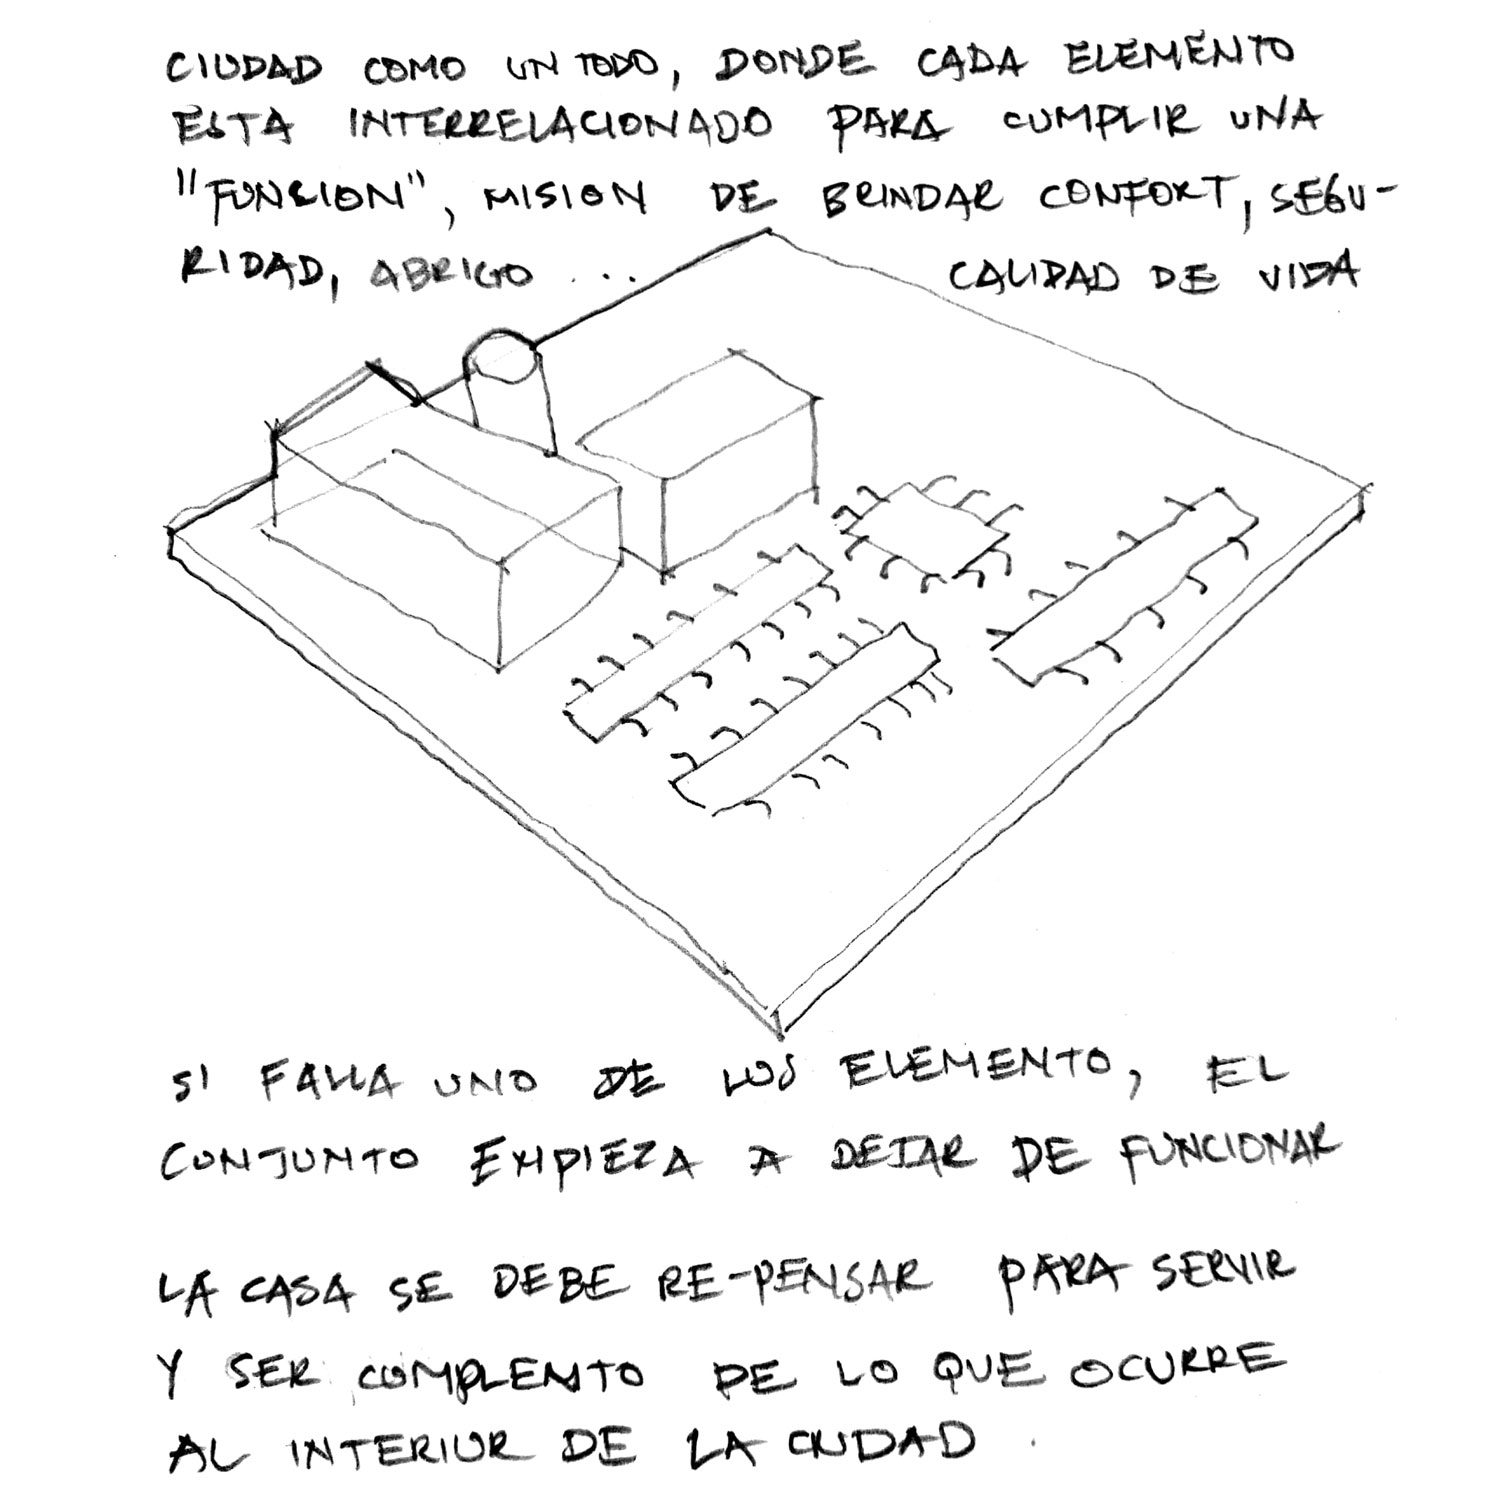 CIUDAD COMO UN TODO, DONDE CADA ELEMENTO
ESTA INTERRELACIONADO PARA CUMPLIR UNA
"FUNCION", MISION DE BRINDAR CONFORT, SEGU-
RIDAD, ABRIGO ... CALIDAD DE VIDA
SI FALLA UNO DE LOS ELEMENTO, EL
CONJUNTO EMPIEZA A DEJAR DE FUNCIONAR
LA CASA SE DEBE RE-PENSAR PARA SERVIR
Y SER COMPLEMTO DE LO QUE OCURRE
AL INTERIOR DE LA CIUDAD.